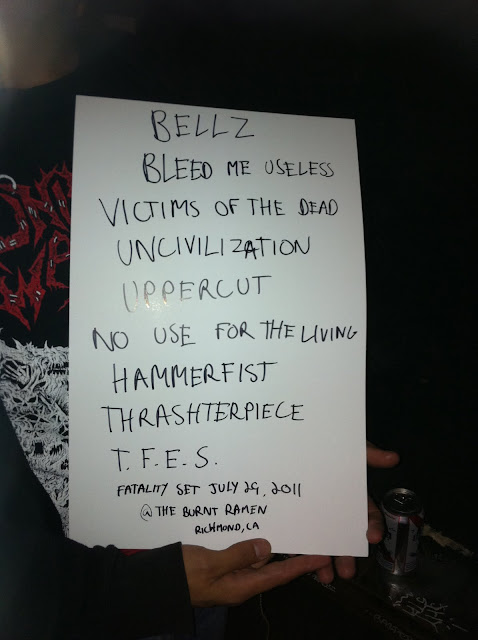 BELLZ
BLEED ME USELESS
VICTIMS OF THE DEAD
UNCIVILIZATION
UPPERCUT
NO USE FOR THE LIVING
HAMMERFIST
THRASHTERPIECE
T.F.E.S.
FATALITY SET JULY 29, 2011
@ THE BURNT RAMEN
RICHMOND, CA